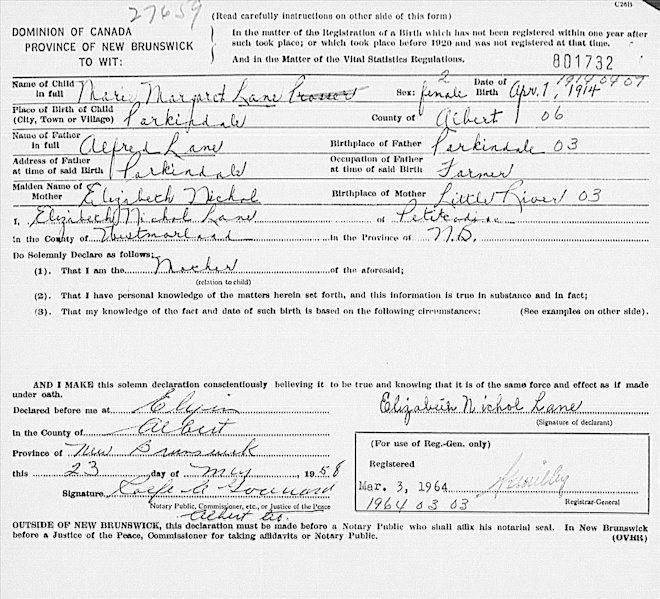 27659
(Read carefully instructions on other side of this form)
C26B
DOMINION OF CANADA
PROVINCE OF NEW BRUNSWICK
TO WIT:
In the matter of the Registration of a Birth which has not been registered within one year after
such took place; or which took place before 1920 and was not registered at that time.
And in the Matter of the Vital Statistics Regulations.
801732
2 1914 04 07
Name of Child in full Marie Margaret Lane Prosser Sex: female Date of Birth Apr. 7, 1914
Place of Birth of Child (City, Town or Village) Parkindale County of Albert 06
Name of Father in full Alfred Lane Birthplace of Father Parkindale 03
Address of Father at time of said Birth Parkindale Occupation of Father at time of said Birth Farmer
Maiden Name of Mother Elizabeth Nichol Birthplace of Mother Little River 03
I, Elizabeth Nichol Lane of Petitcodiac
in the County of Westmorland in the Province of N.B.
Do Solemnly Declare as follows:
(1). That I am the Mother of the aforesaid;
(relation to child)
(2). That I have personal knowledge of the matters herein set forth, and this information is true in substance and in fact;
(3). That my knowledge of the fact and date of such birth is based on the following circumstances: (See examples on other side).
AND I MAKE this solemn declaration conscientiously believing it to be true and knowing that it is of the same force and effect as if made
under oath.
Declared before me at Elgin
Elizabeth Nichol Lane
(Signature of declarant)
In the County of Albert
Province of New Brunswick
this 23 day of May 1958
Signature
Notary Public, Commissioner, etc., or Justice of the Peace
Albert Co.
(For use of Reg.-Gen. only)
Registered
Mar. 3, 1964
Registrar-General
1964 03 03
OUTSIDE OF NEW BRUNSWICK, this declaration must be made before a Notary Public who shall affix his notarial seal. In New Brunswick
before a Justice of the Peace, Commissioner for taking affidavits or Notary Public.
(OVER)